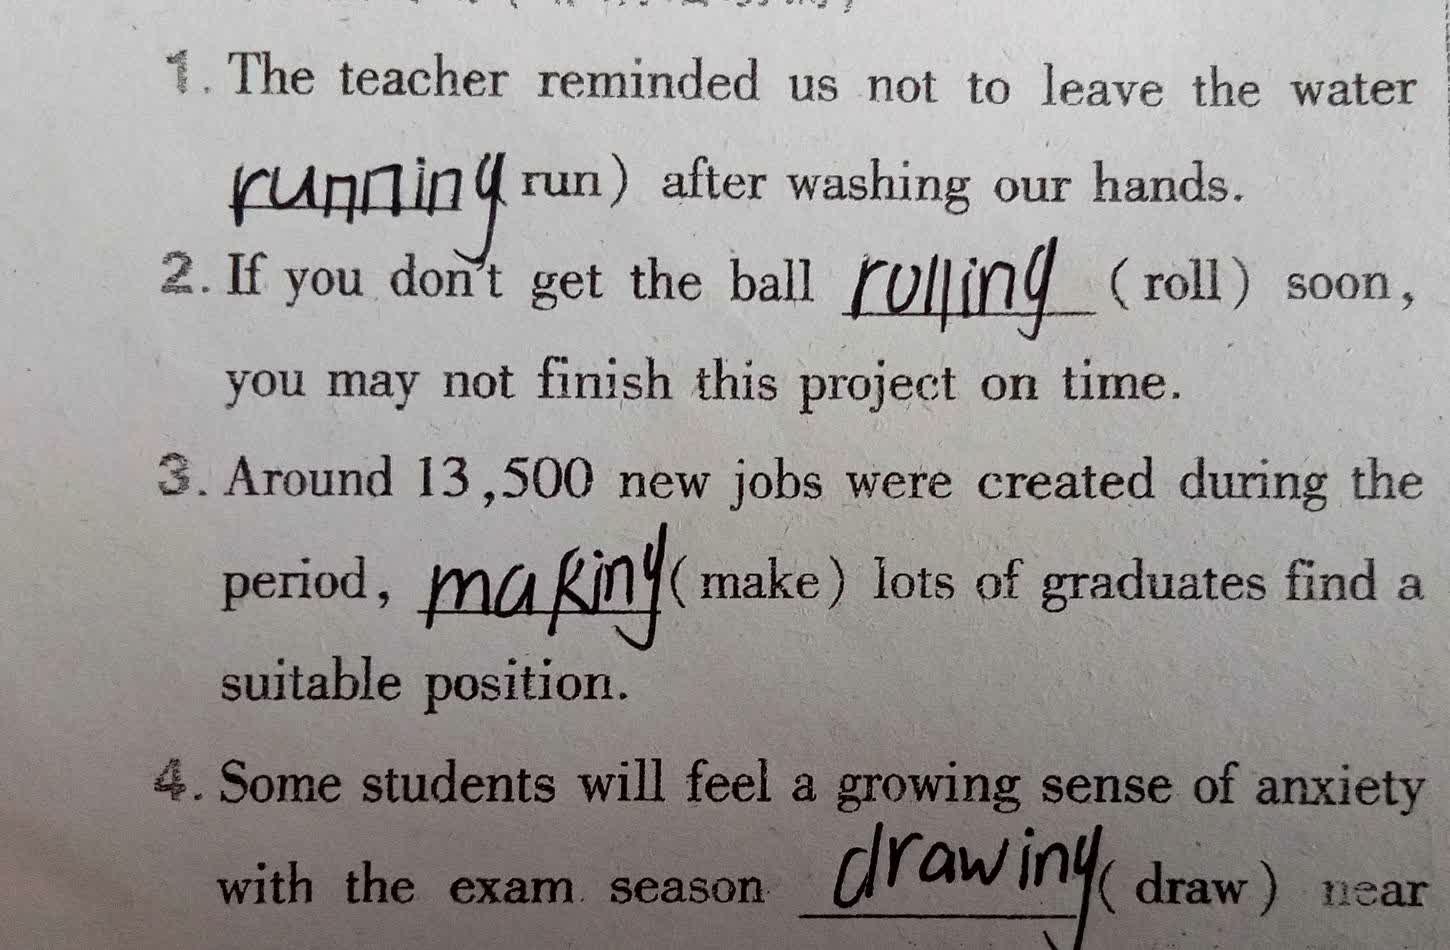 1. The teacher reminded us not to leave the water
running run) after washing our hands.
2. If you don't get the ball rolling (roll) soon,
you may not finish this project on time.
3. Around 13,500 new jobs were created during the
period, making (make) lots of graduates find a
suitable position.
4. Some students will feel a growing sense of anxiety
with the exam season drawing (draw) near